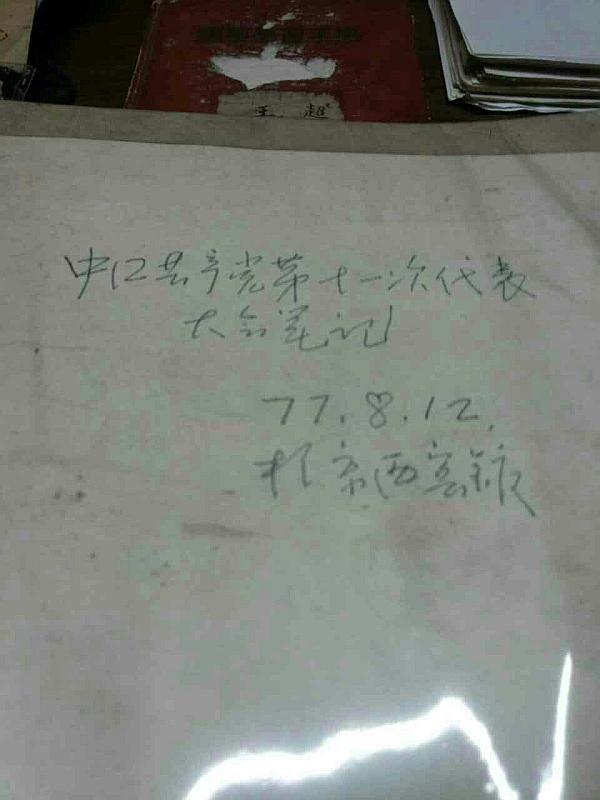 王超
中囗共产党第十一次代表
大会笔记
77.8.12.
于京西宾馆